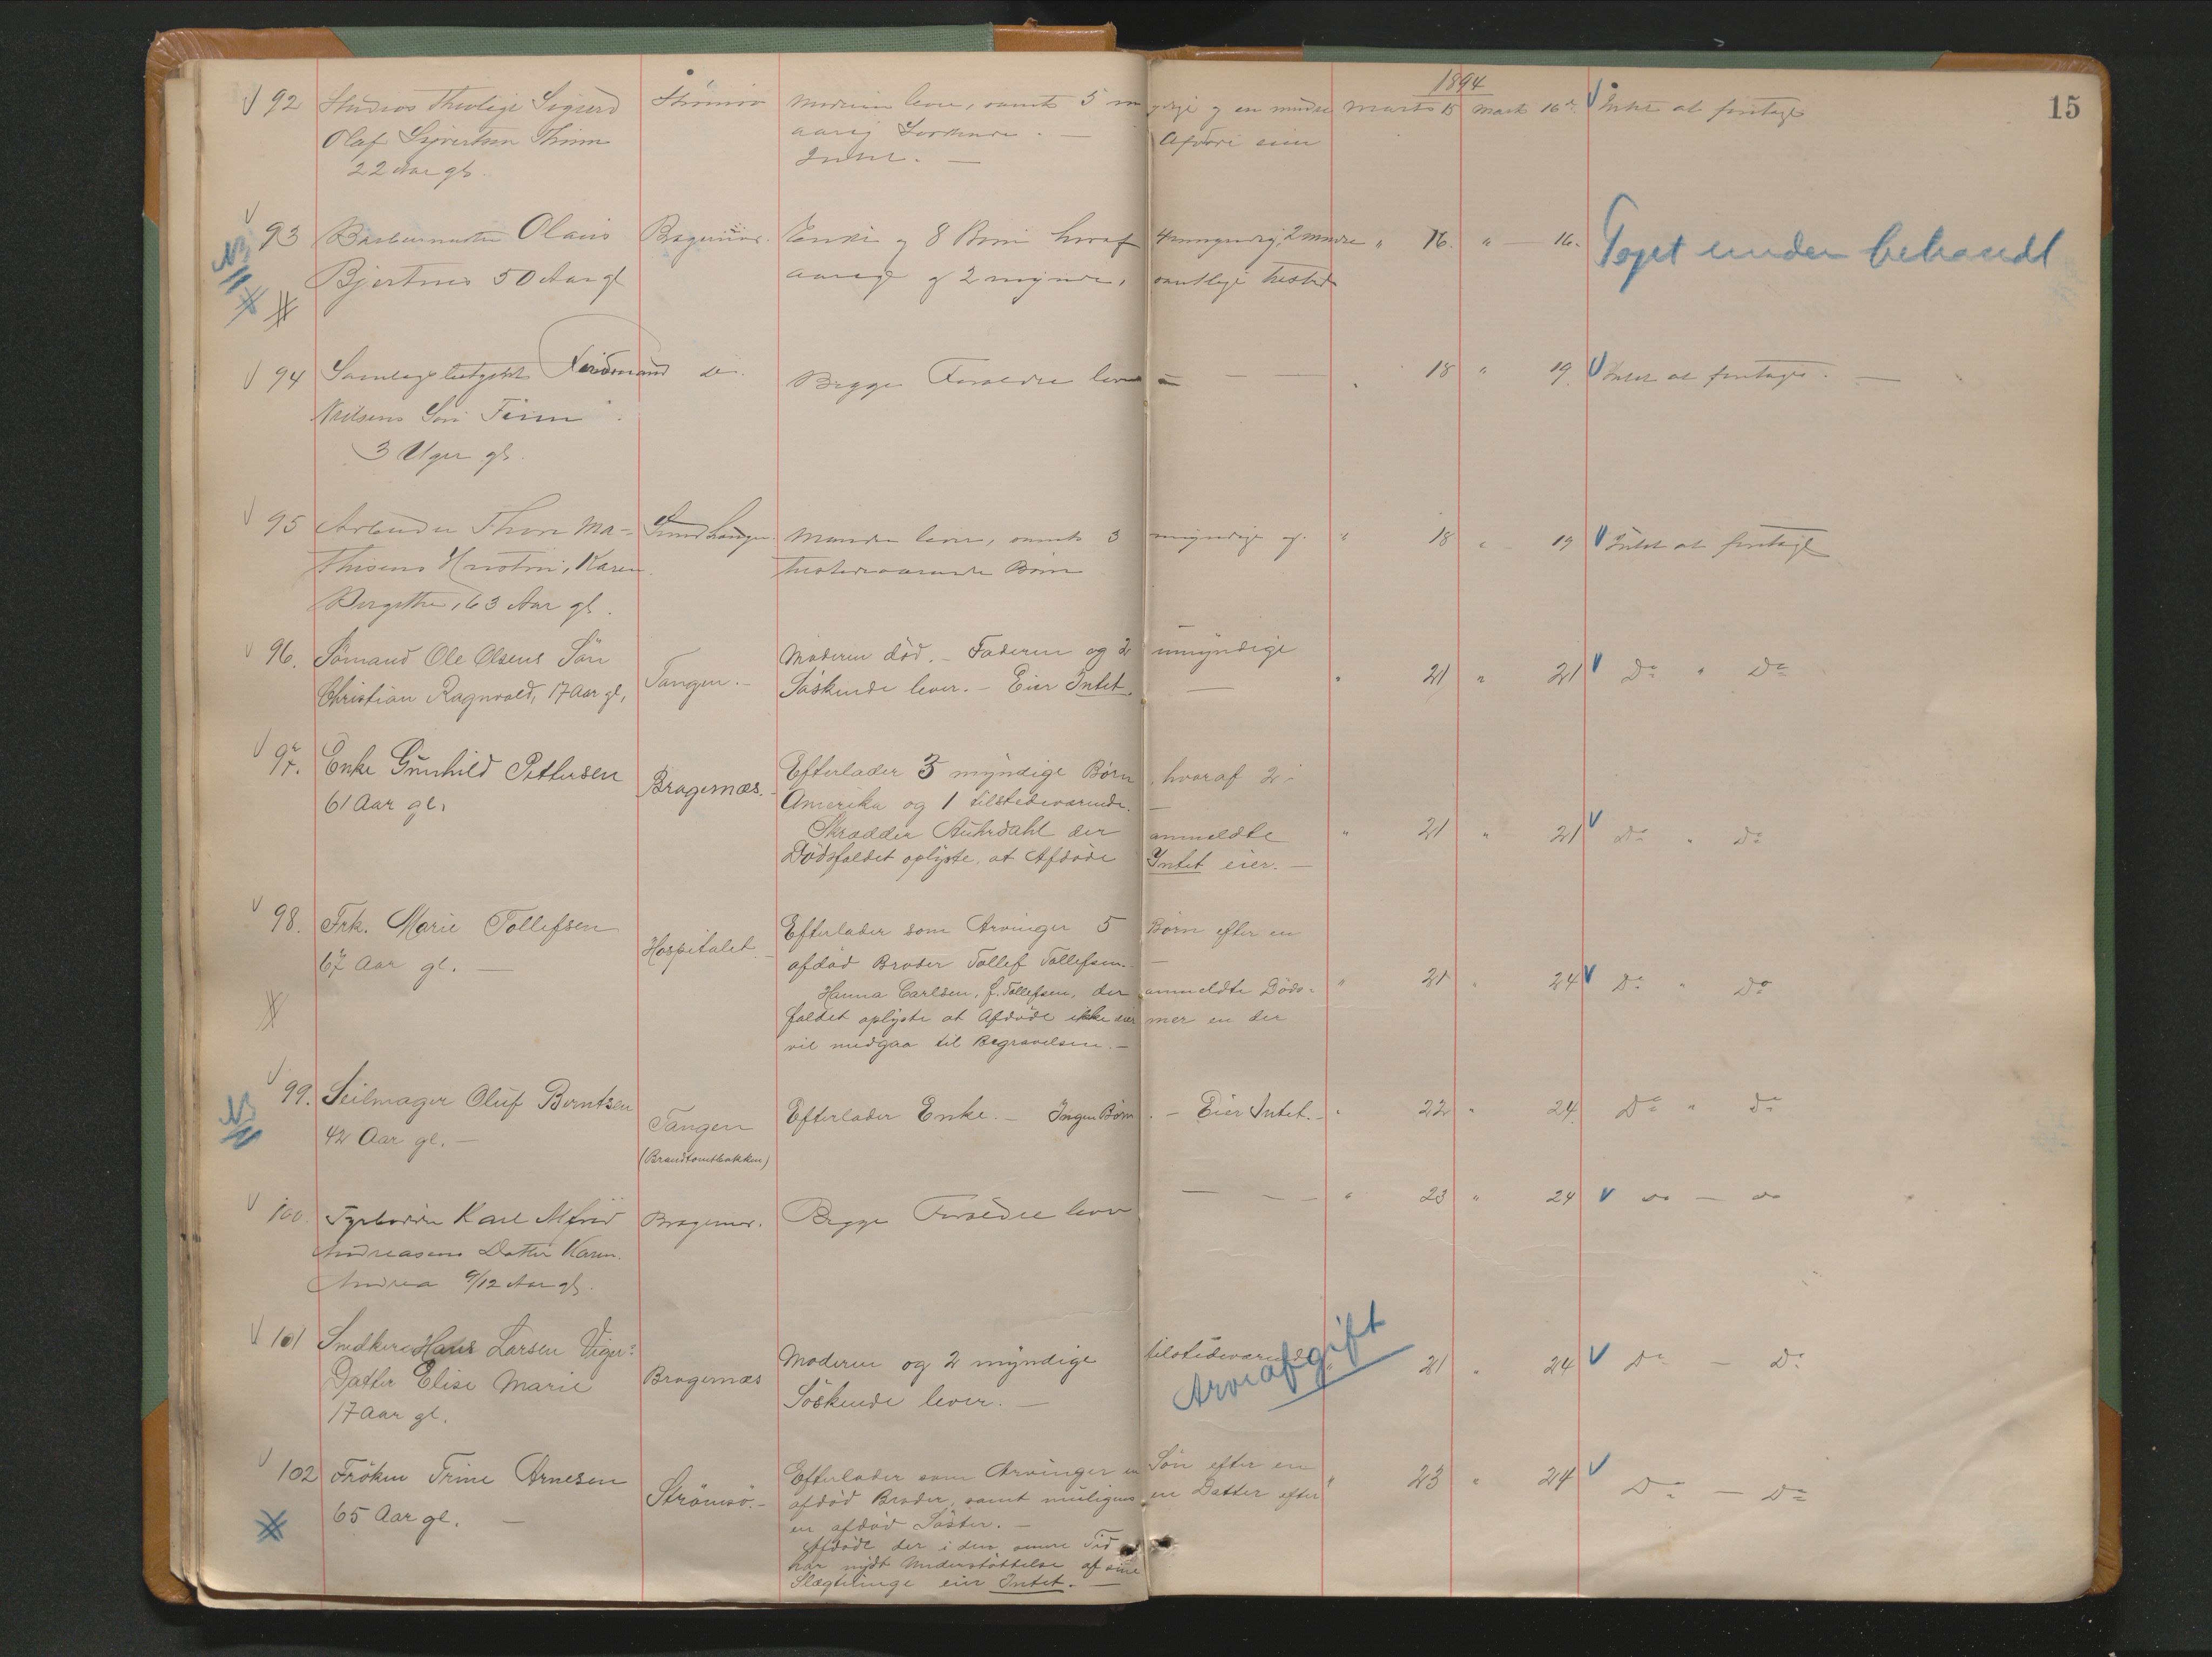 15
1894
92 Studios Theologi Sigurd Strömsö Moderen lever, samt 5 myndige og en mindre Marts 15 Marts 16 Intet at foretage
Olaf Sivertsen Thinn aarig Søskende. — Afdøde eier
22 Aar gl. Intet. —
93 Olaus Bragernæs. Enke og 8 Børn hvoraf 4 umyndig, 2 mindre " 16. " — 16. Taget under behandl
Bjertnes 50 Aar gl aarige og 2 myndr, samtlige tilsted
NB
94 Ferdinand do. Begge Forældre lever — — — 18 " 19. Intet at foretage. —
Neilsens Søn Finn
3 Uger gl.
95 Arbeider Thore Ma- Grønland Manden lever, samt 3 myndige og " 18 " 19 Intet at foretage
thisens Hustru, Karen tilstedeværende Børn
Bergithe, 63 Aar gl.
96. Sømand Ole Olsens Søn Tangen. — Moderen død. — Faderen og 2 umyndige " 21 " 21 Do " Do
Christian Ragnvald, 17 Aar gl, Söskende lever. — Eier Intet. —
97. Enke Gunhild Pettersen Bragernæs. — Efterlader 3 myndige Børn, hvoraf 2 i
61 Aar gl. Amerika og 1 tilstedeværende. —
Skrædder Auhrdahl der anmeldte " 21 " 21 Do " Do
Dödsfaldet oplyste, at Afdøde Intet eier. —
98. Frk. Marie Tollefsen Hospitalet. — Efterlader som Arvinger 5 Børn efter en
67 Aar gl. — afdød Broder Tollef Tollefsen. —
Hanna Carlsen, f. Tollefsen, der anmeldte Döds- " 21 " 24 Do " Do
faldet oplyste at Afdøde ikke eier mer en der
vil medgaa til Begravelsen. —
99. Seilmager Oluf Berntsen Tangen Efterlader Enke. — Ingen Børn. — Eier Intet. — " 22 " 24. Do " Do
NB
42 Aar gl. — (Brandtomtbakken)
100. Fyrbøder Karl Alfred Bragernes. Begge Forældre lever — — — " 23 " 24 do — do
Andreasens Datter Karen
Andrea 9/12 Aar gl.
101 Snedker Hans Larsen Viger's Bragernæs Moderen og 2 myndige tilstedeværende " 21 " 24 Do — Do
Datter Elise Marie Söskende lever. — Arveafgift
17 Aar gl.
102 Fröken Trine Arnesen Strömsö. — Efterlader som Arvinger en Søn efter en " 23 " 24 Do — Do
65 Aar gl. — afdöd Broder, samt muligens en Datter efter
en afdød Söster. —
Afdöde der i den senere Tid
har nydt Understöttelse af sine
Slægtninge eier Intet. —